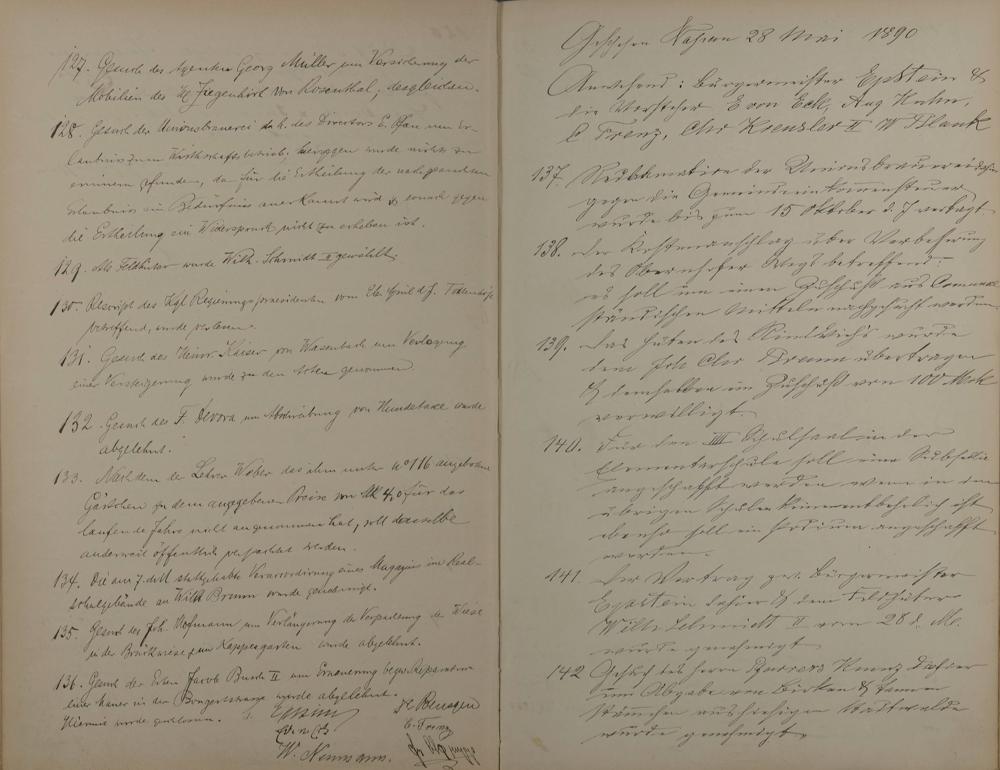 127. Gesuch des Agenten Georg Müller um Versicherung der
Mobilien des H. Ziegenhirt von Rosenthal, desgleichen.
128. Gesuch der Unionsbrauerei d. h. des Directors E. Pfan um Er-
laubniss zum Wirthschaftsbetrieb, hiergegen wurde nichts zu
erinnern gefunden, da für die Ertheilung der nachgesuchten
Erlaubniss ein Bedürfniss anerkannt wird & sonach gegen
die Ertheilung ein Widerspruch nicht zu erheben ist.
129. Als Feldhüter wurde Wilh. Schmidt II gewählt.
130. Rescript des Kgl. Regierungspraesidenten vom April d. J.
betreffend, wurde verlesen.
131. Gesuch des Heinr. Kaiser von Wasenbach um Verlegung
einer Versteigerung wurde zu den Akten genommen
132. Gesuch des F. Devora um Abschreibung von Hundetaxe wurde
abgelehnt.
133. Nachdem der Lehrer Weber das ihm unter No 116 angebotene
Gärtchen zu dem angegebenen Preise von Mk 4,0 für das
laufende Jahr nicht angenommen hat, soll dasselbe
anderweit öffentlich verpachtet werden.
134. Die am 7. d. M. stattgehabte eines Magazins im Real-
schulgebäude an Wilh Bremm wurde genehmigt.
135. Gesuch des Joh. Hofmann um Verlängerung der Verpachtung der Wiese
in der Brückwiese zum Kappesgarten wurde abgelehnt.
136. Gesuch des Jacob Busch II um Erneuerung bezw. Reparatur
einer Mauer in der wurde abgelehnt.
Hiermit wurde geschlossen.
Epstein
W. Neumann.
E. Trenz
Geschehen Nassau 28 Mai 1890
Anwesend: Bürgermeister Epstein &
die Vorsteher E von Eck, Aug Kuhn,
C Trenz, Chr Kreusler II W Blank
137. Reclamation der Unionsbrauerei
gegen die Gemeindeeinkommensteuer
wurde bis zum 15 Oktober d. J vertagt
138. Der Kostenanschlag über Verbesserung
des Obernhofer Wegs betreffend.
es soll um einen Zuschuß aus Communal
ständischen Mitteln nachgesucht werden.
139. Das Hüten des Rindvieh's wurde
dem Joh Chr Bremm übertragen
& demselben ein Zuschuß von 100 Mark
verwilligt.
140. Für den IIII Schulsaal in der
Elementarschule soll eine Subsellie
angeschafft werden, wenn in den
übrigen Schulen keine entbehrlich ist
ebenso soll ein Podium angeschafft
werden.
141. Der Vertrag zw. Bürgermeister
Epstein dahier & dem Feldhüter
Wilh. Schmidt II vom 28 d. Mts.
wurde genehmigt
142 Gesuch des Herrn Pfarrers Kunz dahier
um Abgabe von Birken & Tannen
stämmchen aus hiesigem Stadtwalde
wurde genehmigt.